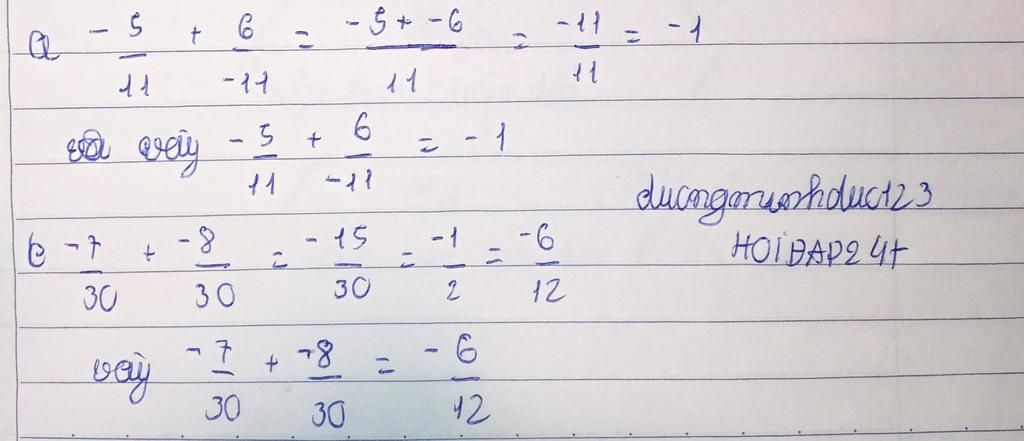 a -5/11 + 6/-11 = -5+-6/11 = -11/11 = -1
vậy -5/11 + 6/-11 = -1
duongminhduc123
HOIĐAP247
b -7/30 + -8/30 = -15/30 = -1/2 = -6/12
vậy -7/30 + -8/30 = -6/12